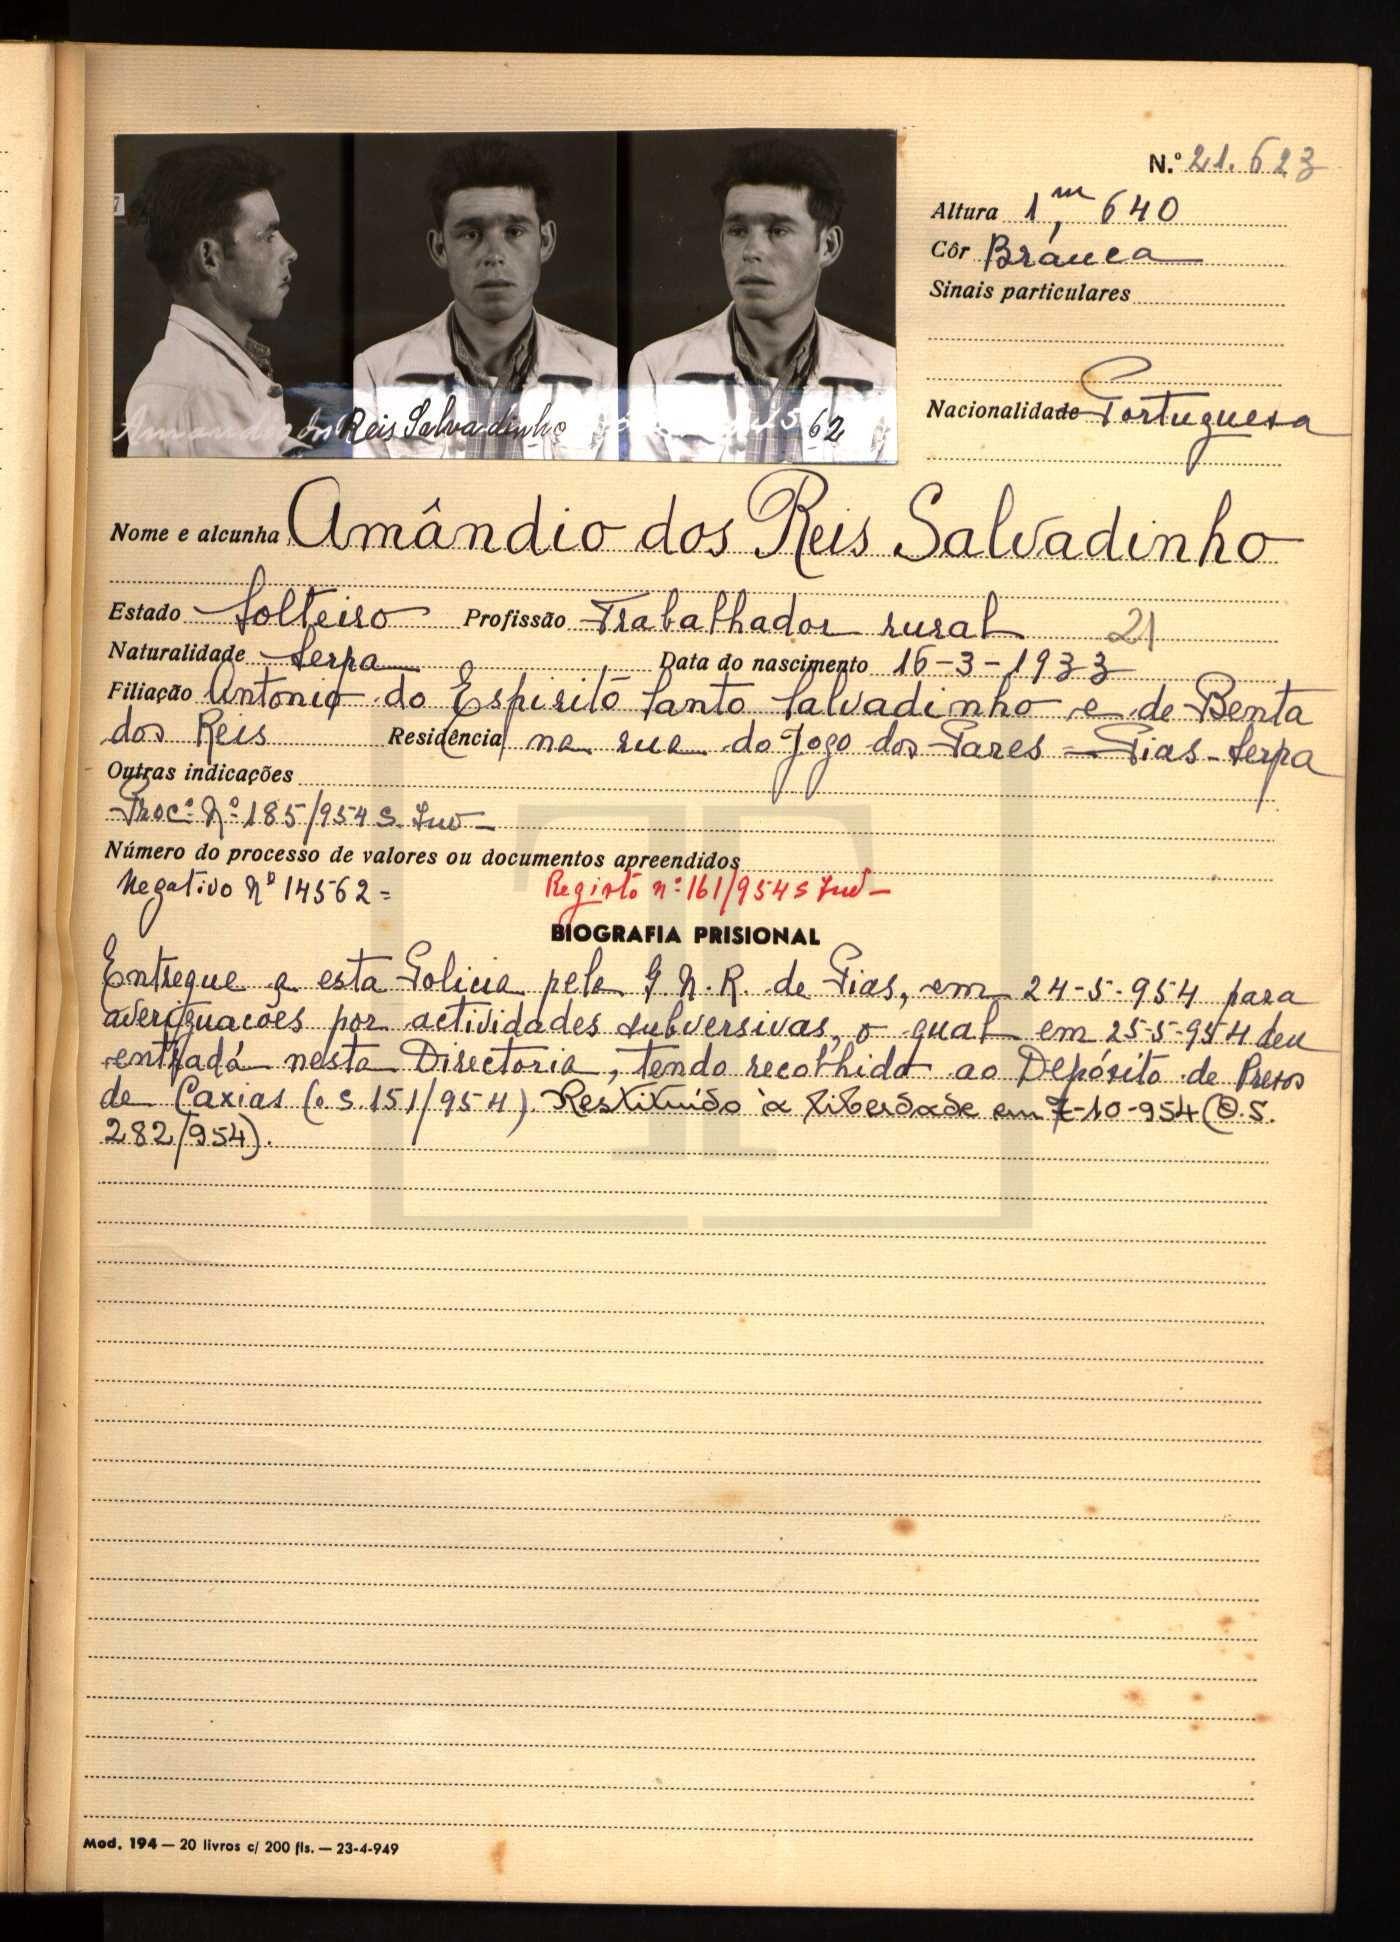 N.º 21.623
Altura 1,m 640
Côr Branca
Sinais particulares
Nacionalidade Portuguesa
Reis Salvadinho 62
Nome e alcunha Amândio dos Reis Salvadinho
Estado Solteiro Profissão Trabalhador rural 21
Naturalidade Serpa Data do nascimento 16-3-1933
Filiação Antonio do Espiritô Santo Salvadinho e de Benta
dos Reis Residência na rua do Jogo dos Pares - Pias - Serpa
Outras indicações
Proc.º N.º 185/954 S. Inv -
Número do processo de valores ou documentos apreendidos
Negativo Nº 14562 = Registo n.º 161/954 S Inv -
BIOGRAFIA PRISIONAL
Entregue a esta Policia pela G.N.R. de Pias, em 24-5-954 para
averiguacões por actividades subversivas, o qual em 25-5-954 deu
entrada nesta Directoria, tendo recolhido ao Depósito de Presos
de Caxias (O.S. 151/954). Restituído à liberdade em 7-10-954 (O.S.
282/954).
Mod. 194 — 20 livros c/ 200 fls. — 23-4-949